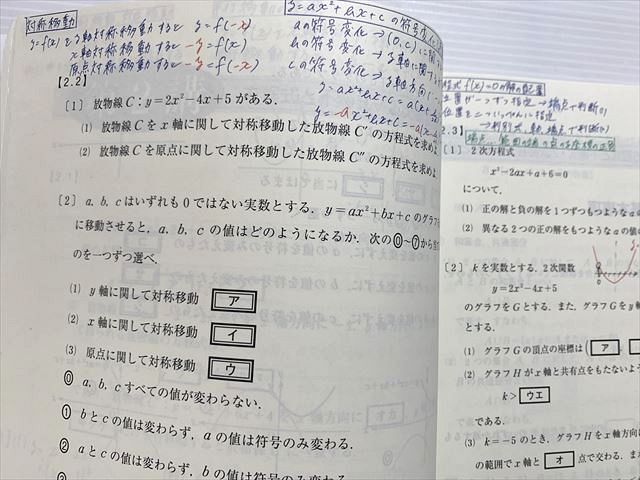 対称移動
y=f(x)をy軸対称移動すると y=f(-x)
x軸対称移動すると -y=f(x)
原点対称移動すると -y=f(-x)
y=ax²+bx+cの符号変化
aの符号変化→(0,c)に関
bの符号変化→y軸に関
cの符号変化→
y=ax²+bx+c=a(x+
y=-ax²+bx+c=-a(x-
【2.2】
〔1〕 放物線 C：y=2x²-4x+5 がある.
(1) 放物線 C を x 軸に関して対称移動した放物線 C′ の方程式を求めよ
(2) 放物線 C を原点に関して対称移動した放物線 C″ の方程式を求めよ
〔2〕 a, b, c はいずれも 0 ではない実数とする. y=ax²+bx+c のグラフを
に移動させると, a, b, c の値はどのようになるか. 次の⓪~⑦から当
のを一つずつ選べ.
(1) y 軸に関して対称移動 ア
(2) x 軸に関して対称移動 イ
(3) 原点に関して対称移動 ウ
⓪ a, b, c すべての値が変わらない.
① b と c の値は変わらず, a の値は符号のみ変わる.
② a と c の値は変わらず, b の値は符号のみ変
方程式 f(x)=0の解の配置
2.3】
〔1〕 2次方程式
x²-2ax+a+6=0
について,
(1) 正の解と負の解を1つずつもつような a の
(2) 異なる2つの正の解をもつような a の値
〔2〕 k を実数とする. 2次関数
y=2x²-4x+5
のグラフを G とする. また, グラフ G を y 軸
とする.
(1) グラフ G の頂点の座標は( ア ,
(2) グラフ H が x 軸と共有点をもたないよう
k> ウエ
である.
(3) k=-5 のとき, グラフ H を x 軸方向に
の範囲で x 軸と オ 点で交わる. また